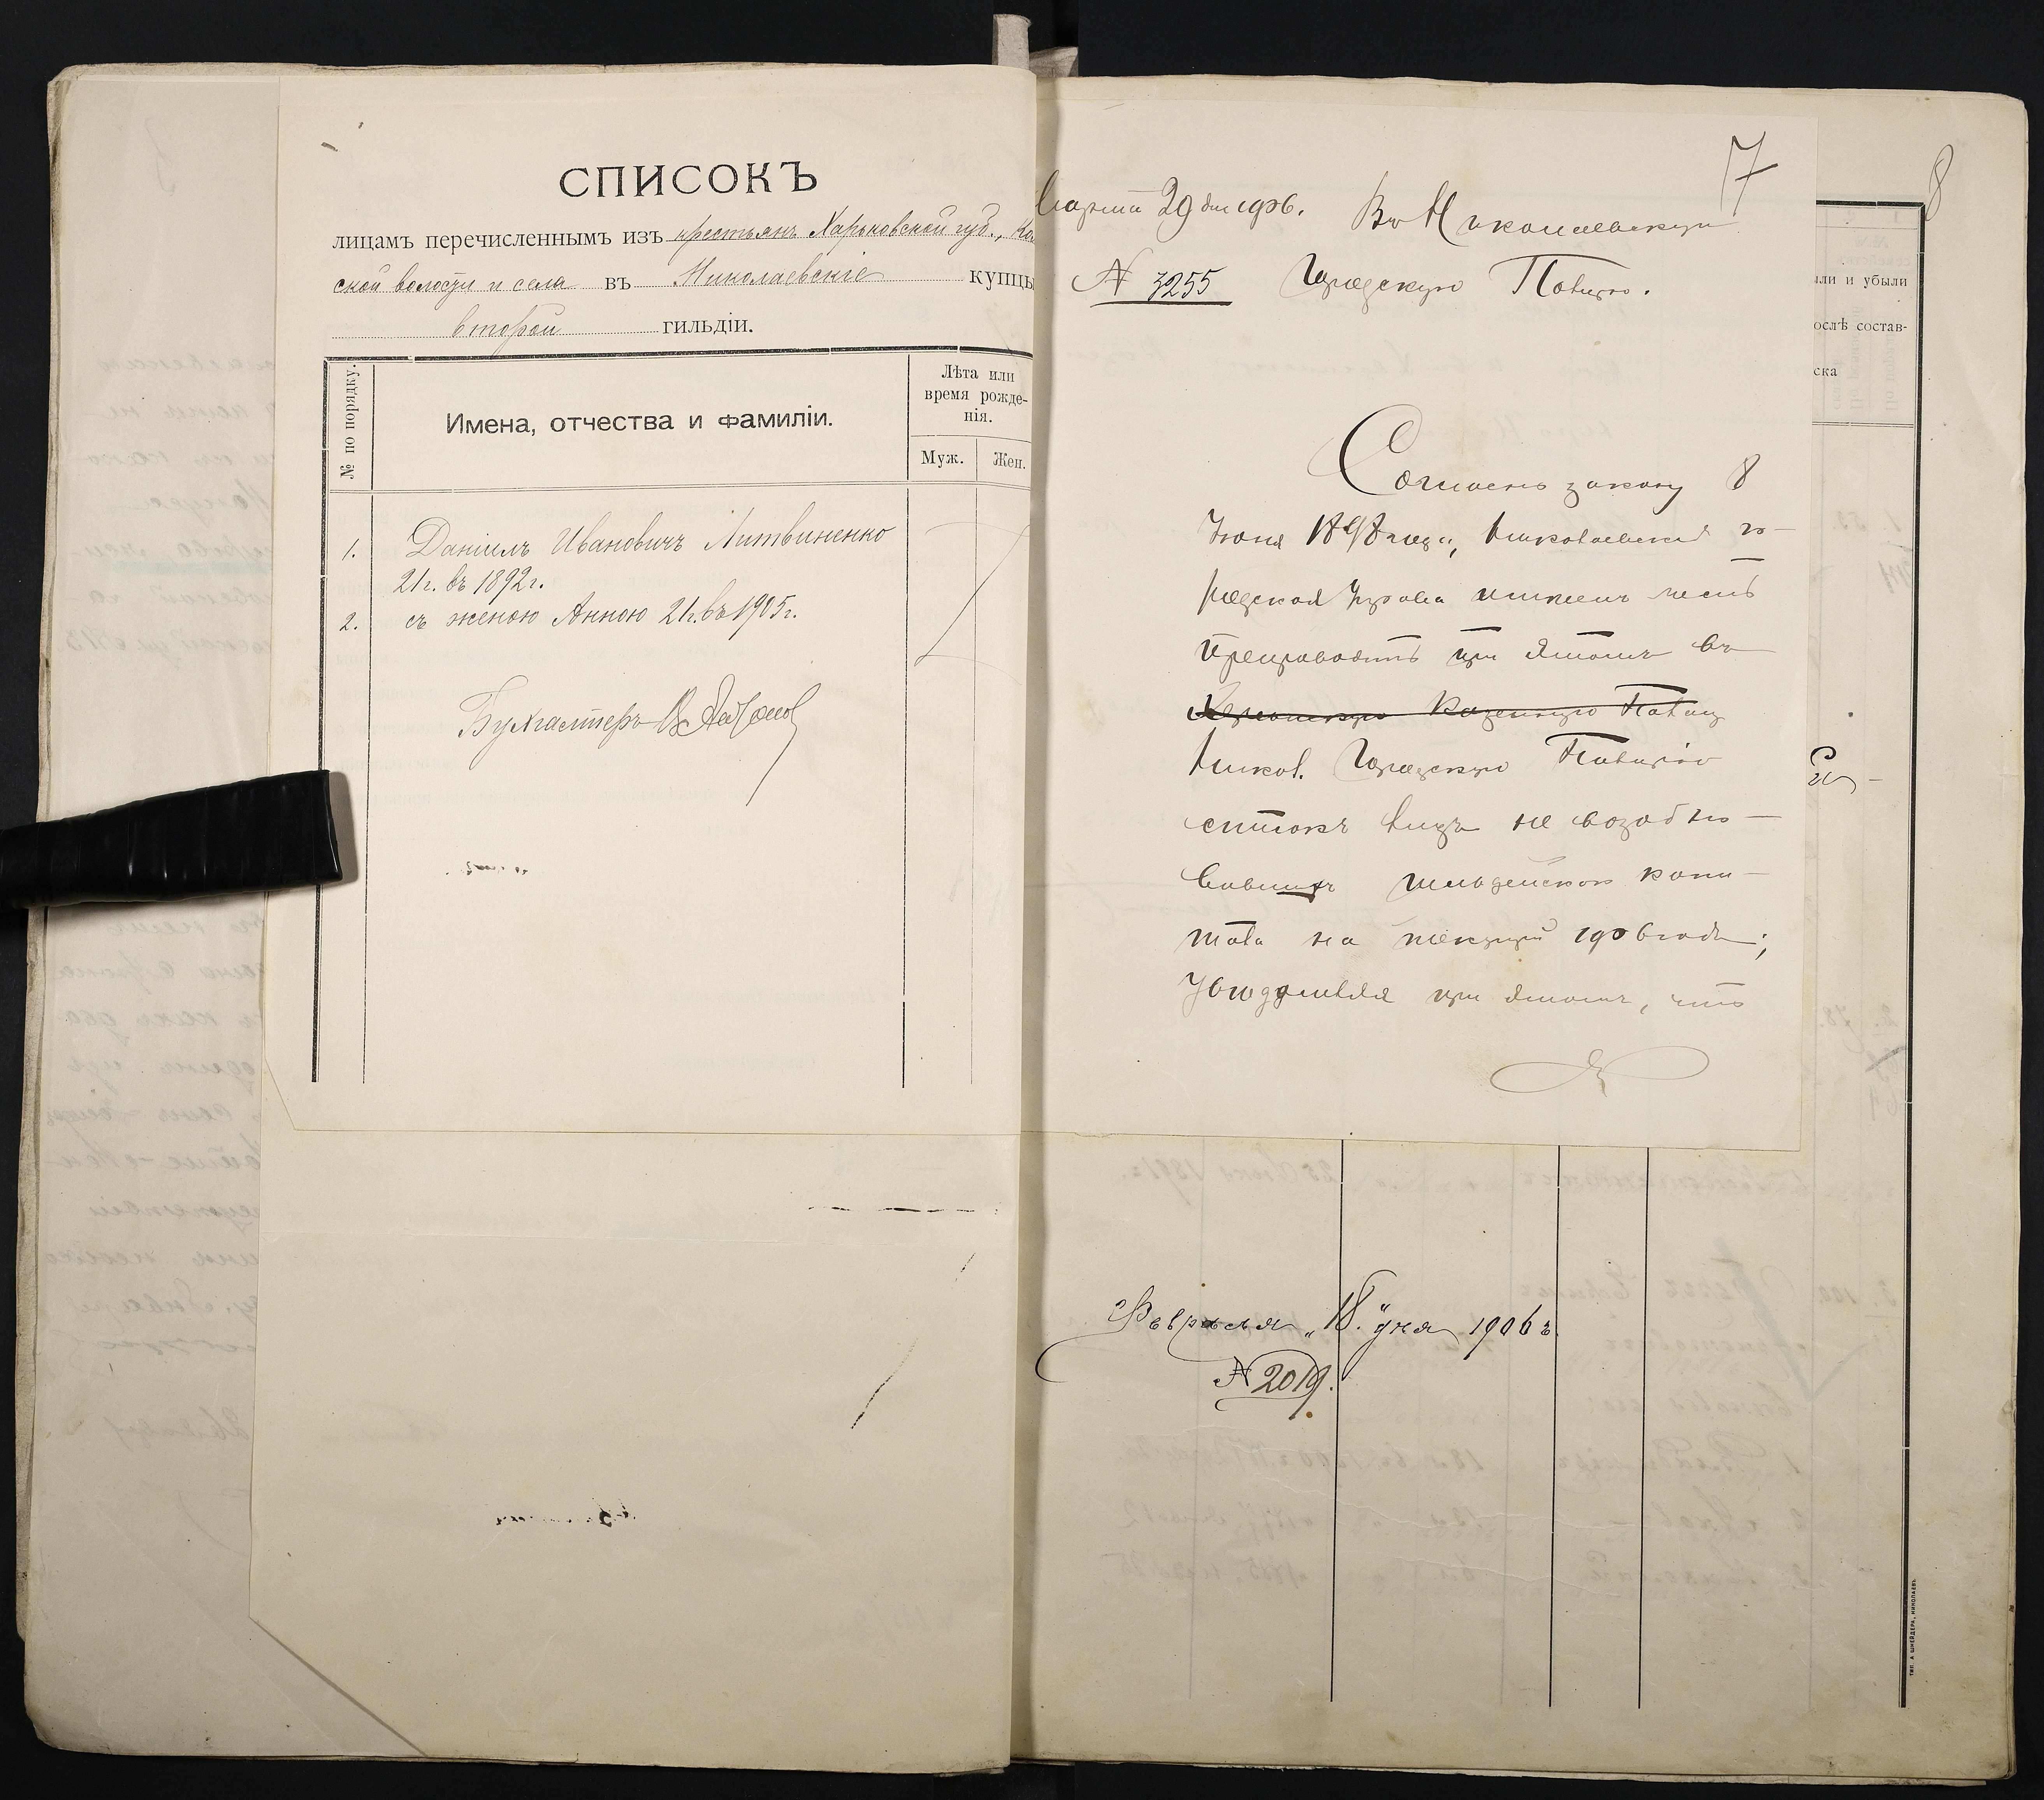 СПИСОКЪ
лицамъ перечисленнымъ изъ крестьянъ Харьковской губ.,
ской волости и села въ Николаевскіе купцы
второй гильдіи.
№ по порядку.
Имена, отчества и фамиліи.
Лѣта или
время рожде-
нія.
Муж. Жен.
1. Даніилъ Ивановичъ Литвиненко
21г. въ 1892г.
2. съ женою Анною 21г. въ 1905г.
Бухгалтеръ
7
8
Марта 29 дня 1906. Въ Николаевскую
№ 3255 Городскую Полицію.
Согласно закону 8
Іюня 1898 года, Николаевская го-
родская Управа имѣетъ честь
препроводить при этомъ въ
Херсонскую Казенную Палату
Никол. Городскую Полицію
списокъ лицъ не возобно-
вившихъ гильдейскаго капи-
тала на текущій 1906 годъ;
увѣдомляя при этомъ, что
ыли и убыли
ослѣ состав-
ска
Февраля „18" дня 1906 г.
№ 2019.
ТИП. А ШНЕЙДЕРА, НИКОЛАЕВЪ.